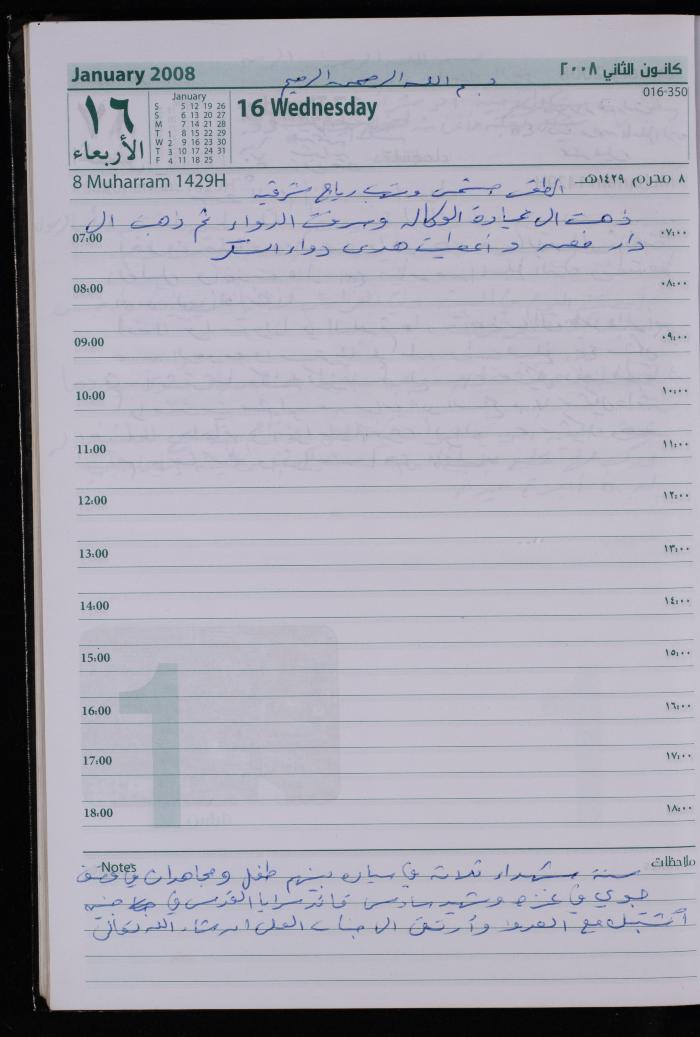 January 2008
بسم الله الرحمن الرحيم
كانون الثاني ٢٠٠٨
016-350
١٦
الأربعاء
January
S 5 12 19 26
S 6 13 20 27
M 7 14 21 28
T 1 8 15 22 29
W 2 9 16 23 30
T 3 10 17 24 31
F 4 11 18 25
16 Wednesday
8 Muharram 1429H
٨ محرم ١٤٢٩هـ
الطقس مشمس وتهب رياح شرقيه
ذهبت ال عيادة الوكاله وصرفت الدواء ثم ذهبت ال
07:00 ٠٧:٠٠
دار و اعطيت هدى دواء السكر
08:00 ٠٨:٠٠
09:00 ٠٩:٠٠
10:00 ١٠:٠٠
11:00 ١١:٠٠
12:00 ١٢:٠٠
13:00 ١٣:٠٠
14:00 ١٤:٠٠
15:00 ١٥:٠٠
16:00 ١٦:٠٠
17:00 ١٧:٠٠
18:00 ١٨:٠٠
1
Notes ملاحظات
ستة شهداء ثلاثة في سياره بينهم طفل ومجاهدان في قصف
جوي في غزه وشهيد سادس قائد سرايا القدس في جنين
أشتبك مع العدو وأرتقى ال العلى ان شاء الله تعالى